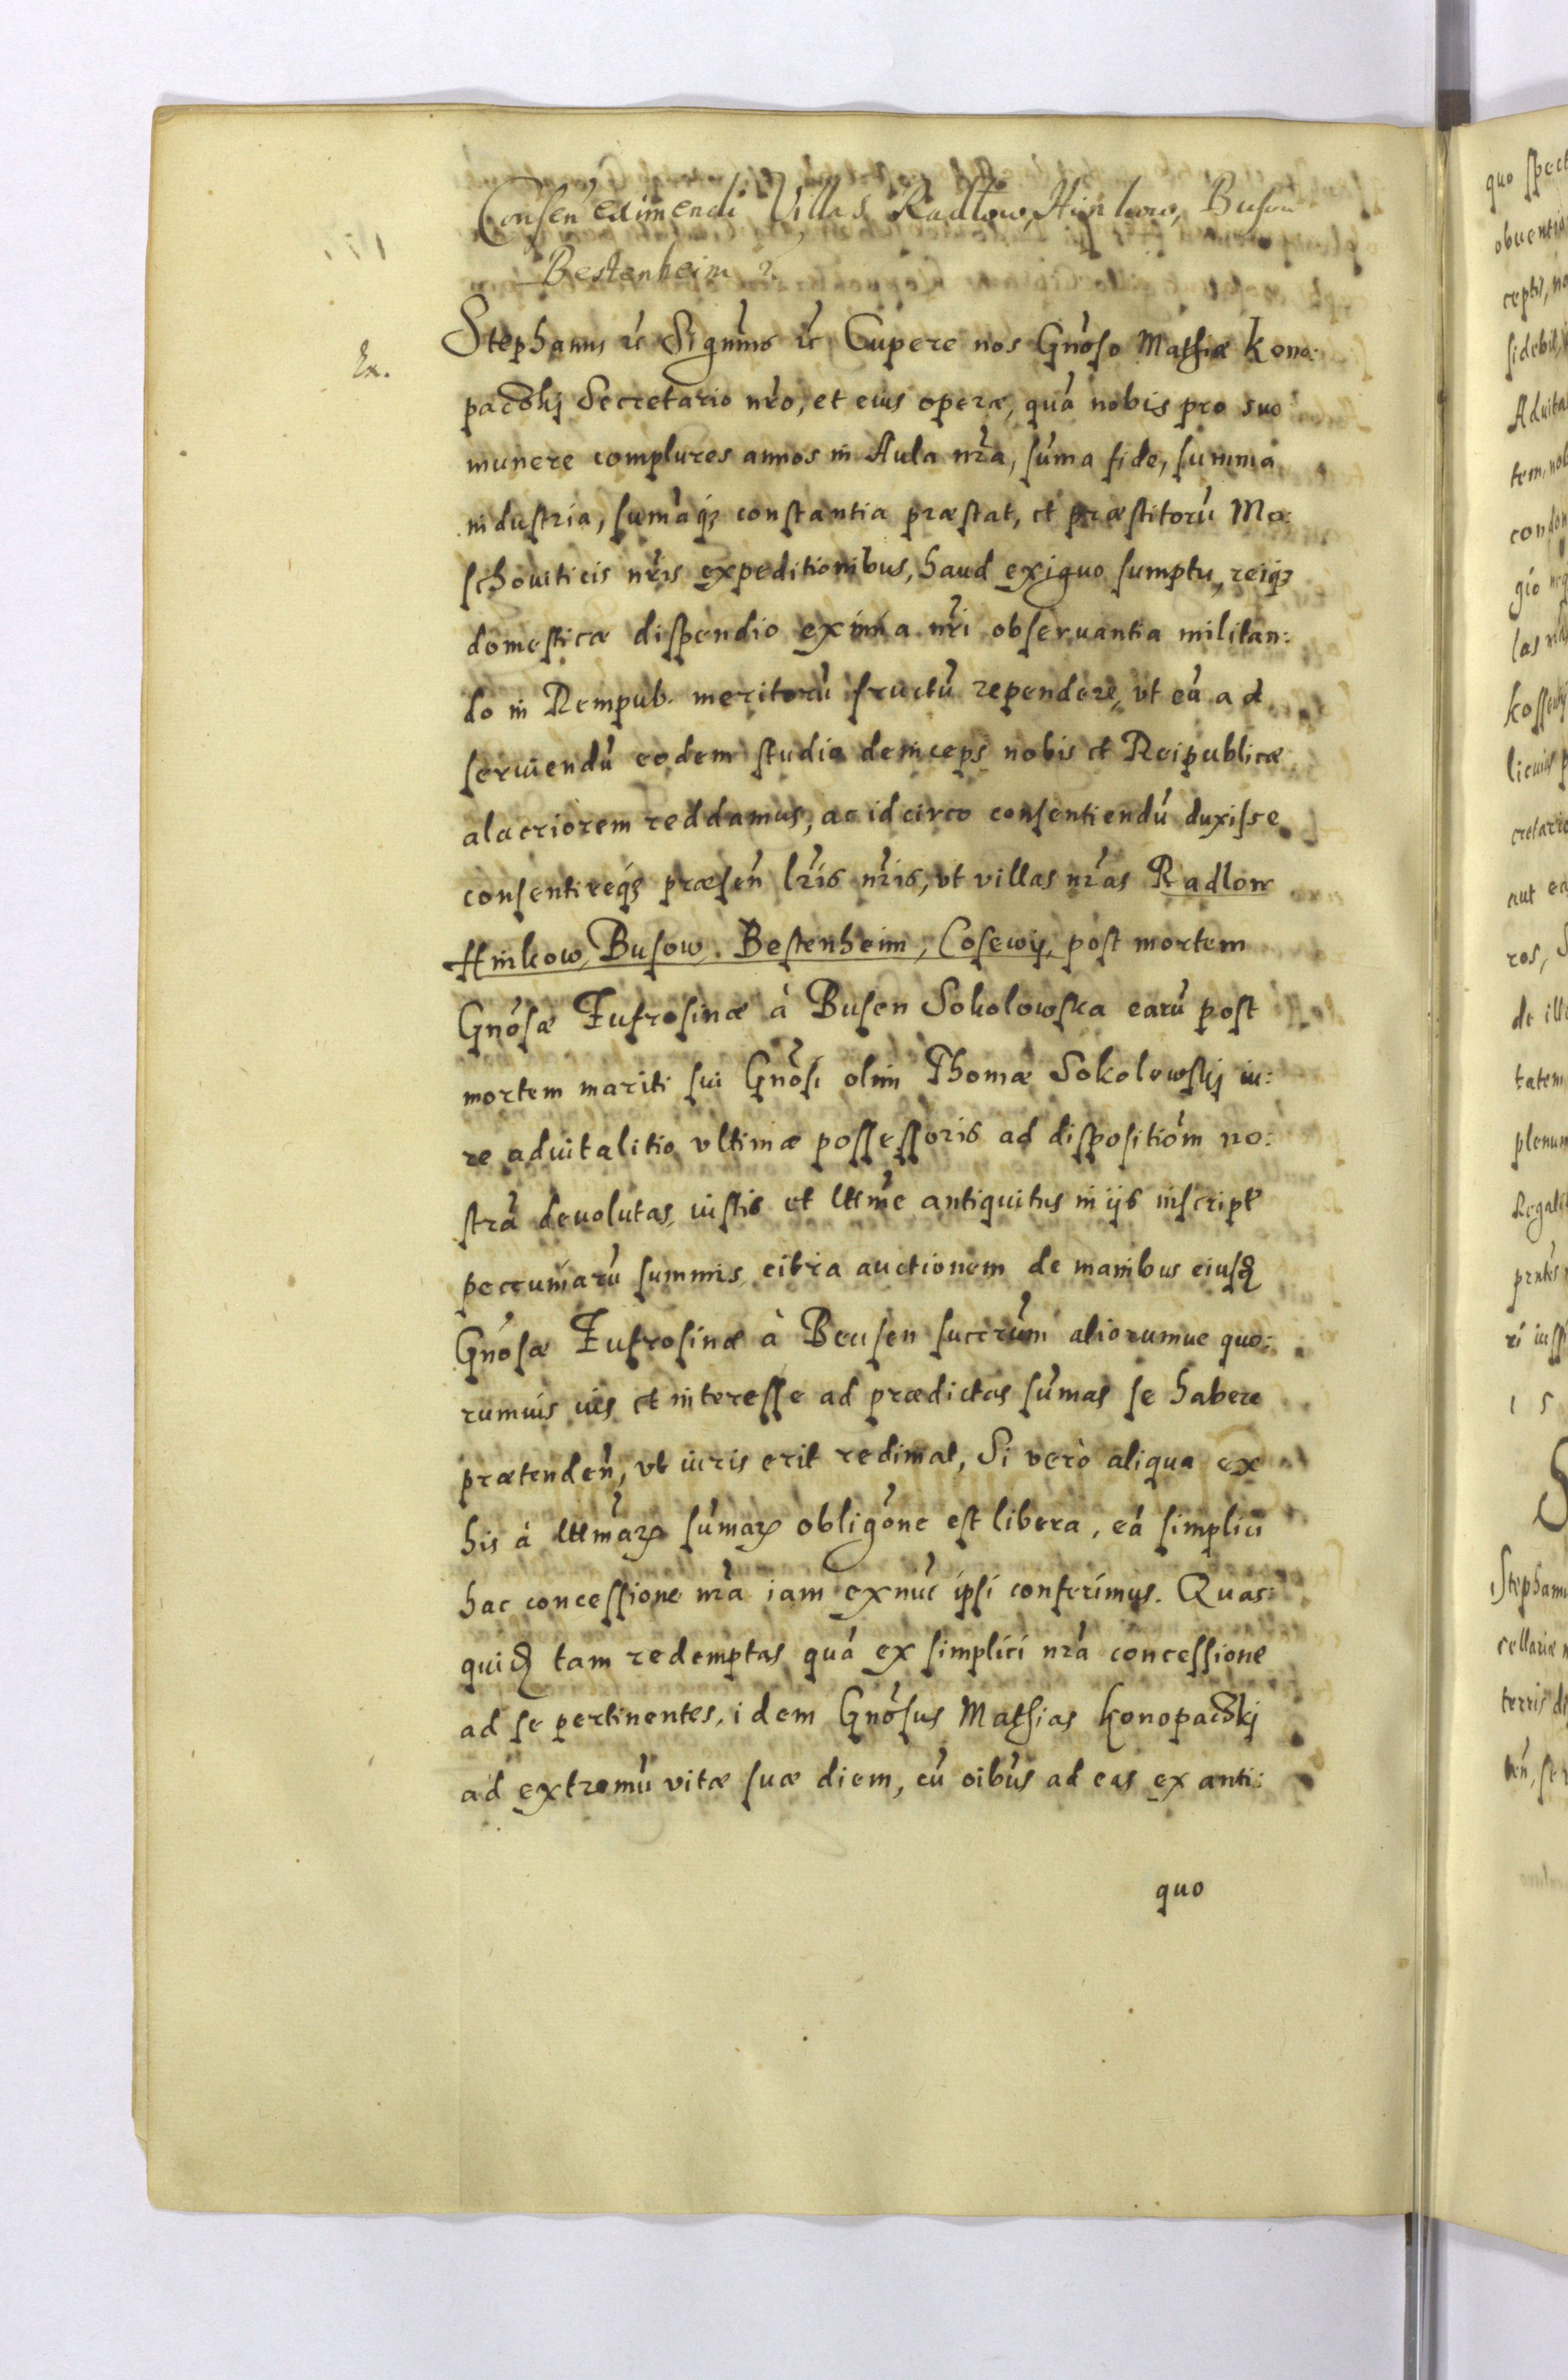 Consen̄ eximendi Villas Radlow, Hinkow, Busou
Bestenheim
Ex.
Stephanus ꝛc̃ Significamus ꝛc̃ Cupere nos Gnõso Mathiæ Kono:
paczkj Secretario nr̃o, et eius operæ, quã nobis pro suo
munere complures annos in Aula nr̃a, sũma fide, summa
industria, sum̃aqꜣ constantia præstat, et præstitorũ Mo:
schouiticis nr̃is expeditionibus, haud exiguo sumptu, reiqꜣ
domesticæ dispendio eximia nr̃i obseruantia militan:
do in Rempub. meritorũ fructũ rependere, vt eũ ad
seruiendũ eodem studio deinceps nobis et Reipublicæ
alacriorem reddamus, ac idcirco consentiendũ duxisse
consentireqꜣ præsen̄ lr̃is nr̃is, vt villas nr̃as Radlow
Hinkow, Busow, Bestenheim, Cosewy, post mortem
Gnõsæ Eufrosinæ à Busen Sokolowska earũ post
mortem mariti sui Gnõsi olim Thomæ Sokolowskj iu:
re aduitalitio vltimæ possessoris ad dispositiõm no:
strã deuolutas, iustis et lttme antiquitus in ijs inscript
pecuniarũ summis, citra auctionem de manibus eiusđ
Gnõsæ Eufrosinæ à Beusen succrũm aliorumue quo:
rumuis ius et interesse ad prædictas sũmas se habere
prætenden̄, vt iuris erit redimat, Si verò aliqua ex
his à lttmaꝝ sũmaꝝ obligõne est libera, eã simplici
hac concessione nr̃a iam exnũc ipsi conferimus. Quas:
quiđ tam redemptas quã ex simplici nr̃a concessione
ad se pertinentes, idem Gnõsus Mathias Konopaczkj
ad extremũ vitæ suæ diem, cũ oĩbus ad eas ex anti:
quo